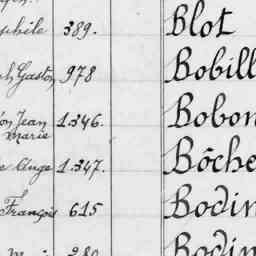 phile 389. Blot
Gaston 978 Bobill
Jean
Marie 1.346. Bobon
Ange 1.347. Bôche
François 615 Bodin
280 Bodin